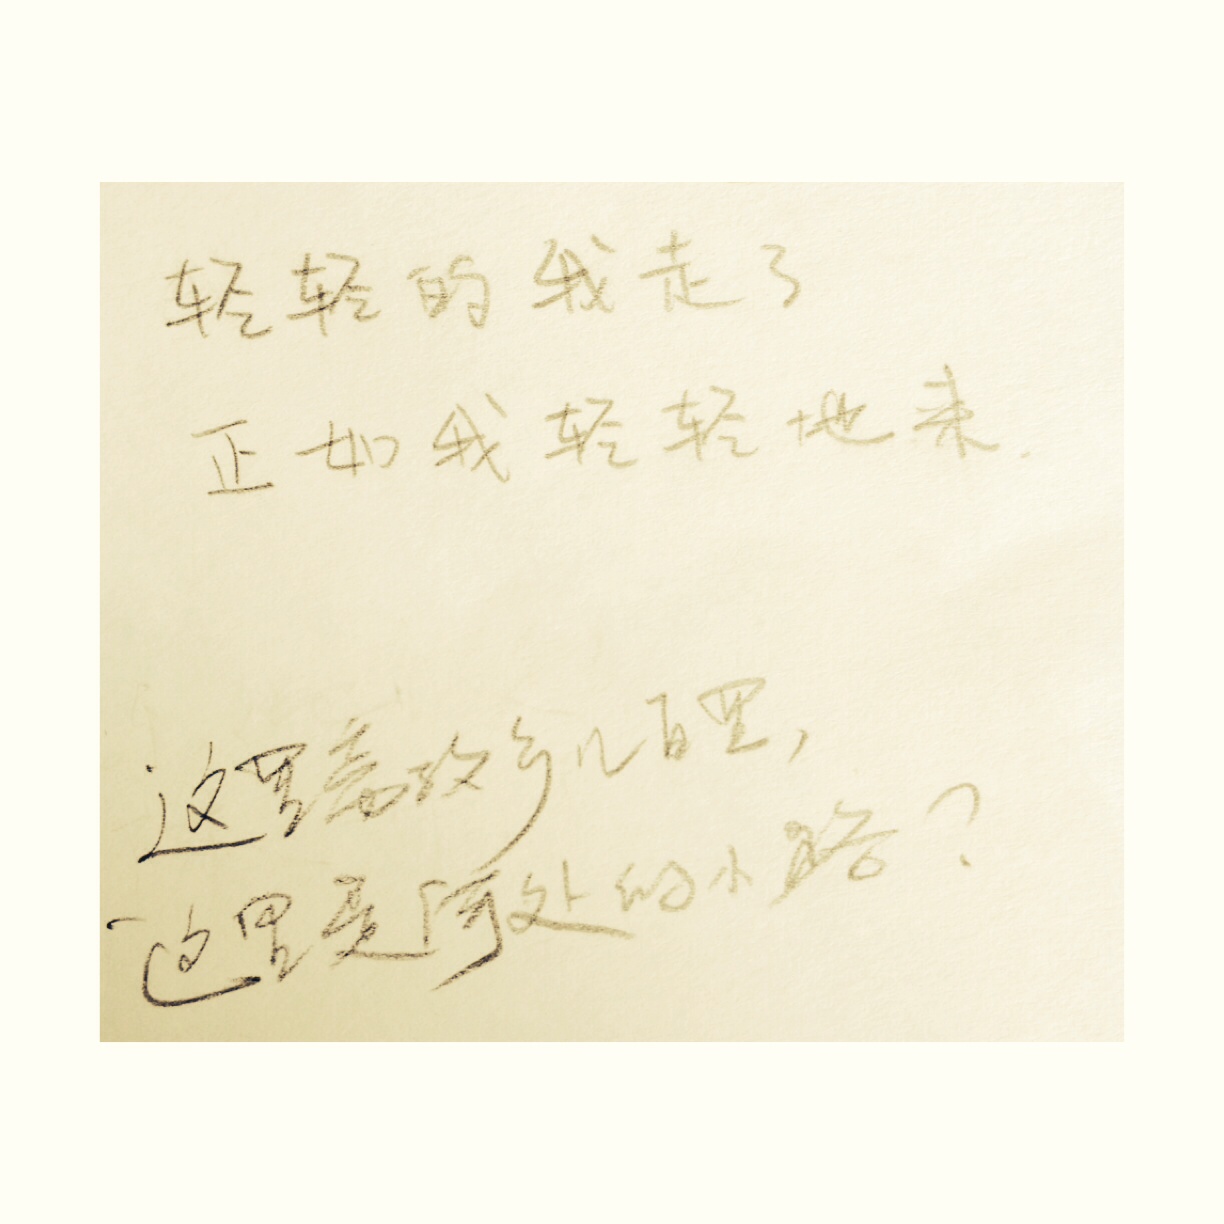 轻轻的我走了
正如我轻轻地来.
这里离故乡几百里,
这里是何处的小路?